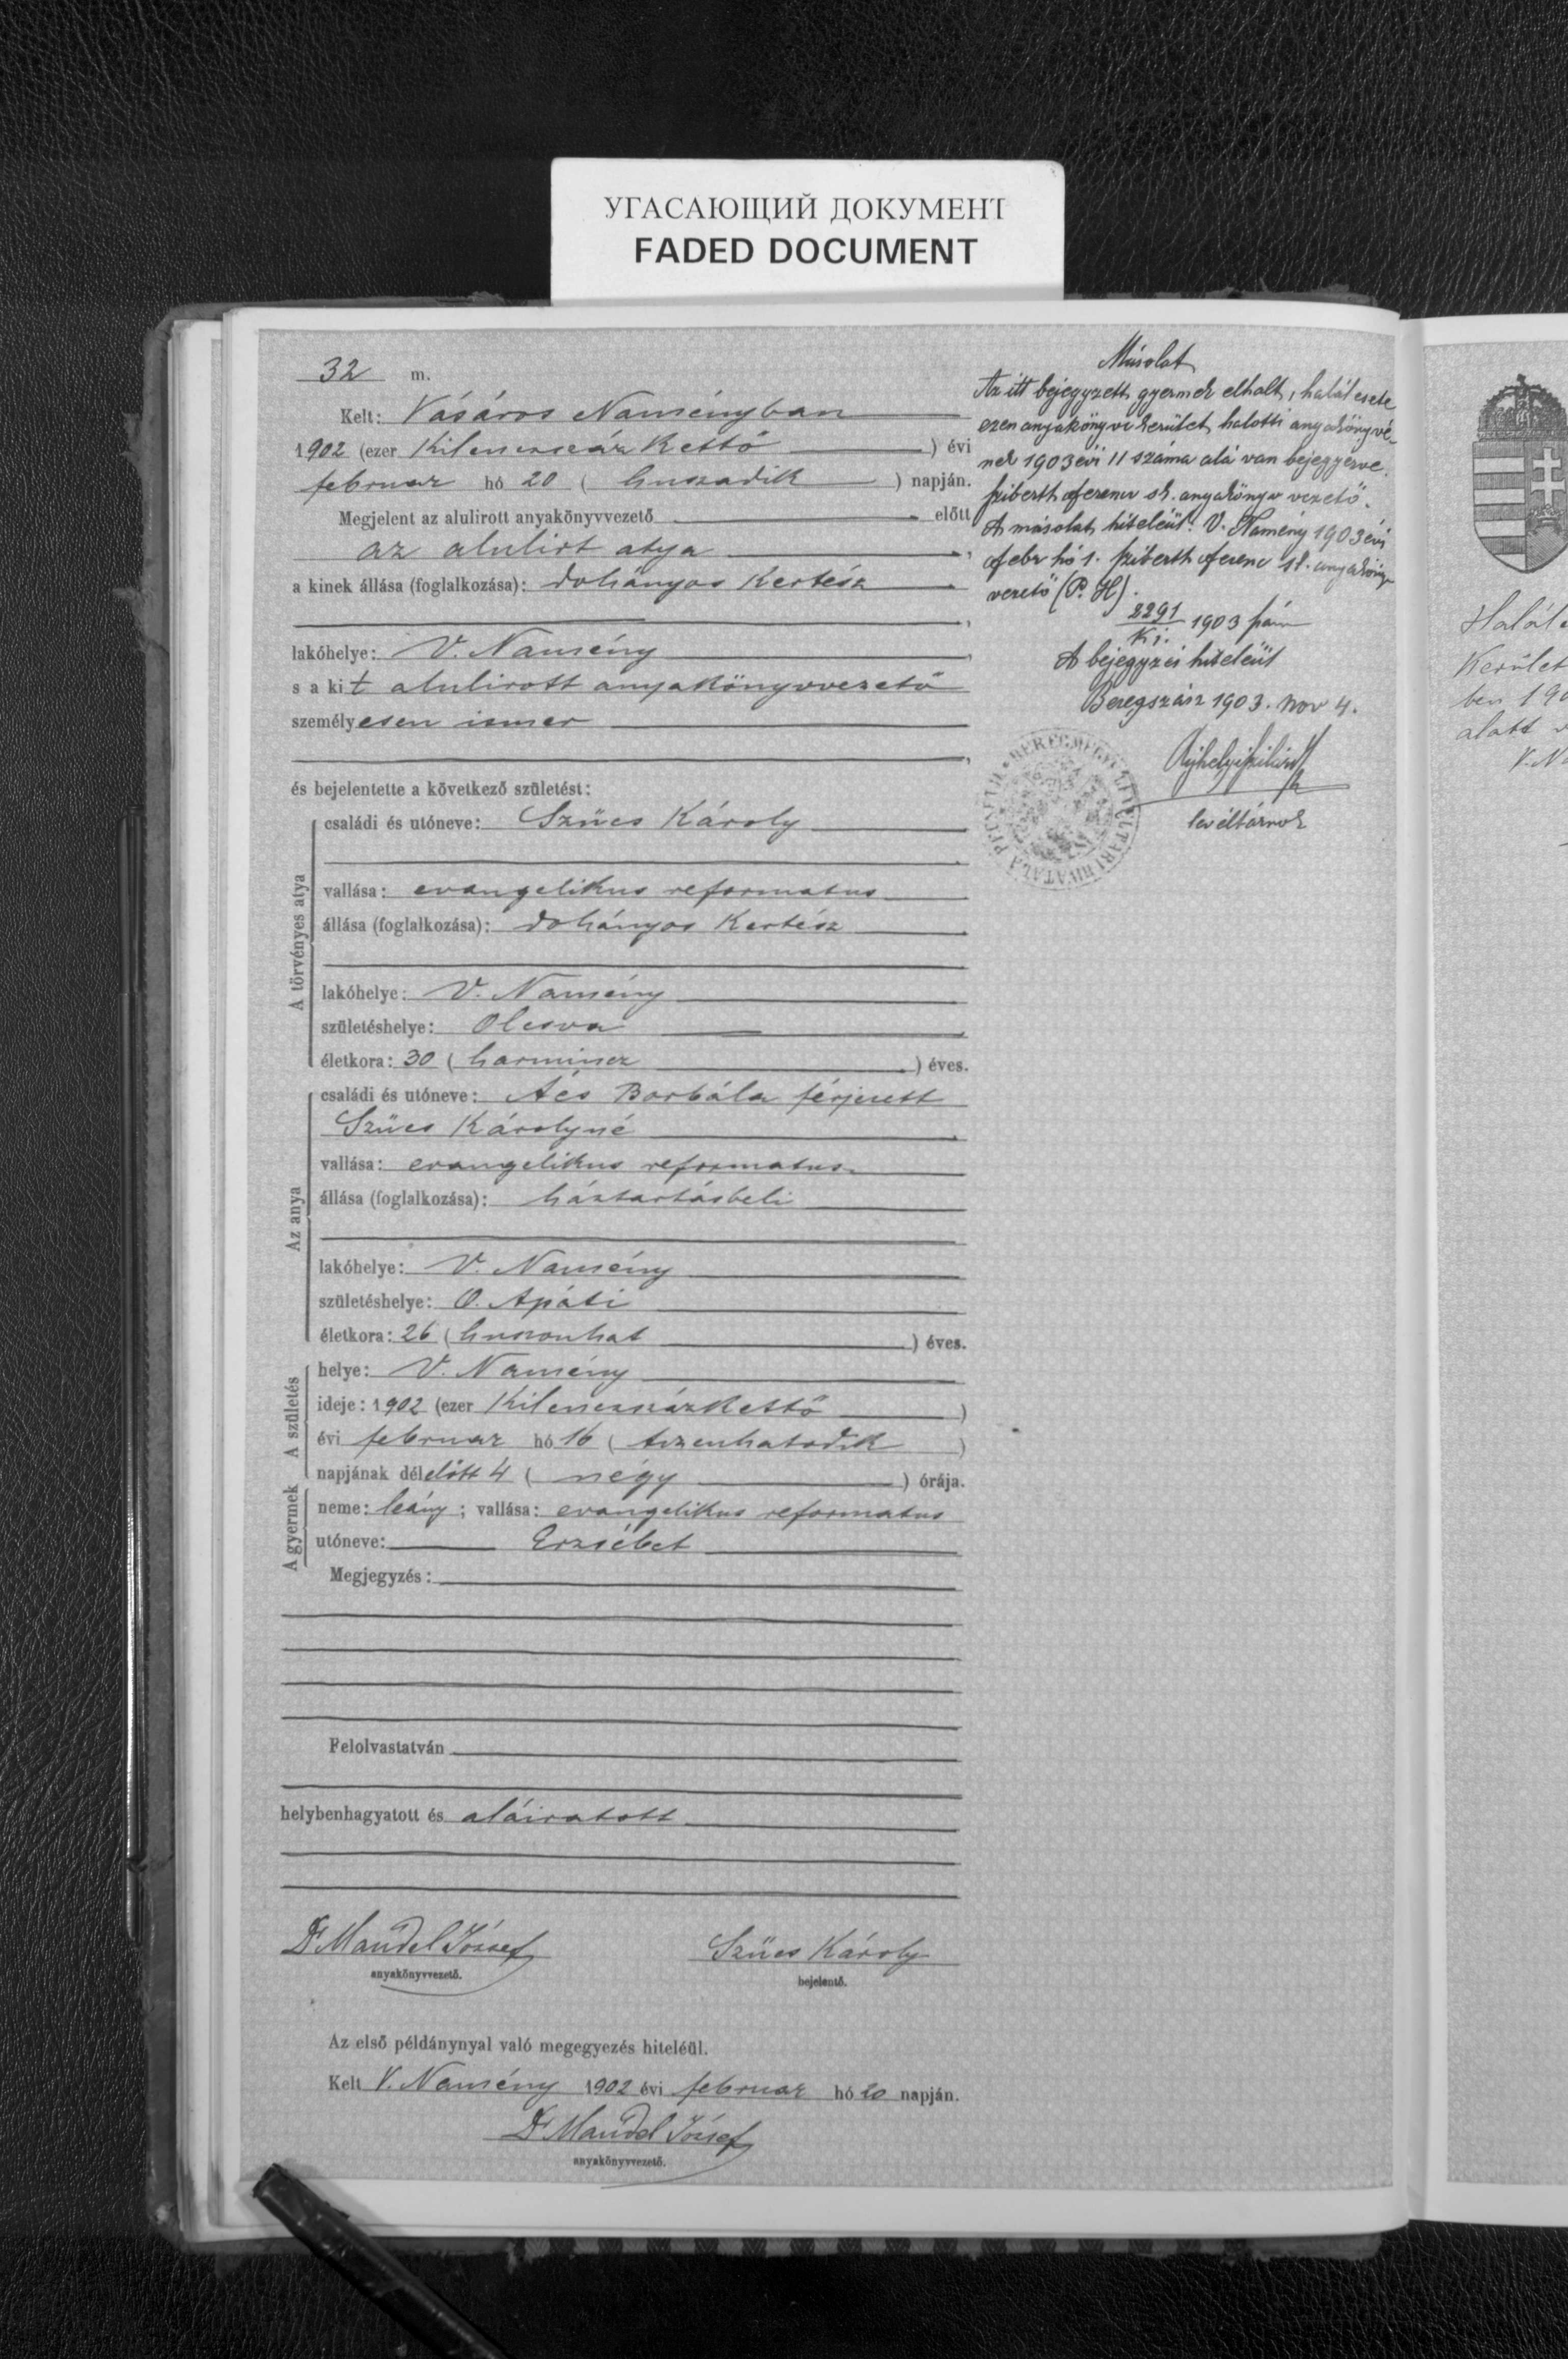 УГАСАЮЩИЙ ДОКУМЕНТ
FADED DOCUMENT
32 m.
Kelt: Vásáros Naményban
1902 (ezer Kilenczszáz Kettő) évi
februar hó 20 (huszadik) napján.
Megjelent az alulirott anyakönyvvezető előtt
az alulirt atya,
a kinek állása (foglalkozása): dohányos Kertész
lakóhelye: V. Namény,
s a kit alulirott anyakönyvvezető
személyesen ismer
és bejelentette a következő születést:
A törvényes atya
családi és utóneve: Szűcs Károly
vallása: evangelikus reformatus
állása (foglalkozása): dohányos Kertész
lakóhelye: V. Namény
születéshelye: Olcsva
életkora: 30 (harmincz) éves.
Az anya
családi és utóneve: Ács Borbála férjezett
Szűcs Károlyné
vallása: evangelikus reformatus
állása (foglalkozása): háztartásbeli
lakóhelye: V. Namény
születéshelye: O. Apáti
életkora: 26 (huszonhat) éves.
A születés
helye: V. Namény
ideje: 1902 (ezer KilenczszázKettő)
évi februar hó 16 (tizenhatodik)
napjának délelőtt 4 (négy) órája.
A gyermek
neme: leány; vallása: evangelikus reformatus
utóneve: Erzsébet
Megjegyzés:
Felolvastatván
helybenhagyatott és aláiratott
Dr Mandel József
anyakönyvvezető.
Szűcs Károly
bejelentő.
Az első példánynyal való megegyezés hiteléül.
Kelt V. Namény 1902 évi februar hó 20 napján.
Dr Mandel József
anyakönyvvezető.
Másolat
Az itt bejegyzett gyermek elhalt, halál esete
ezen anyakönyvi kerület halotti anyakönyvé-
nek 1903 évi 11 száma alá van bejegyezve.
Ferenc sk. anyakönyv vezető.
A másolat hiteléül. V. Namény 1903 évi
febr hó 1. Ferenc sk. anyakönyv
vezető (P. H).
2291
Ki. 1903 szám
A bejegyzés hiteléül
Beregszász 1903. nov 4.
levéltárnok
BEREGMEGYE LEVÉLTÁRI HIVATALA
Halál
Kerület
ben 190
alatt
V. N